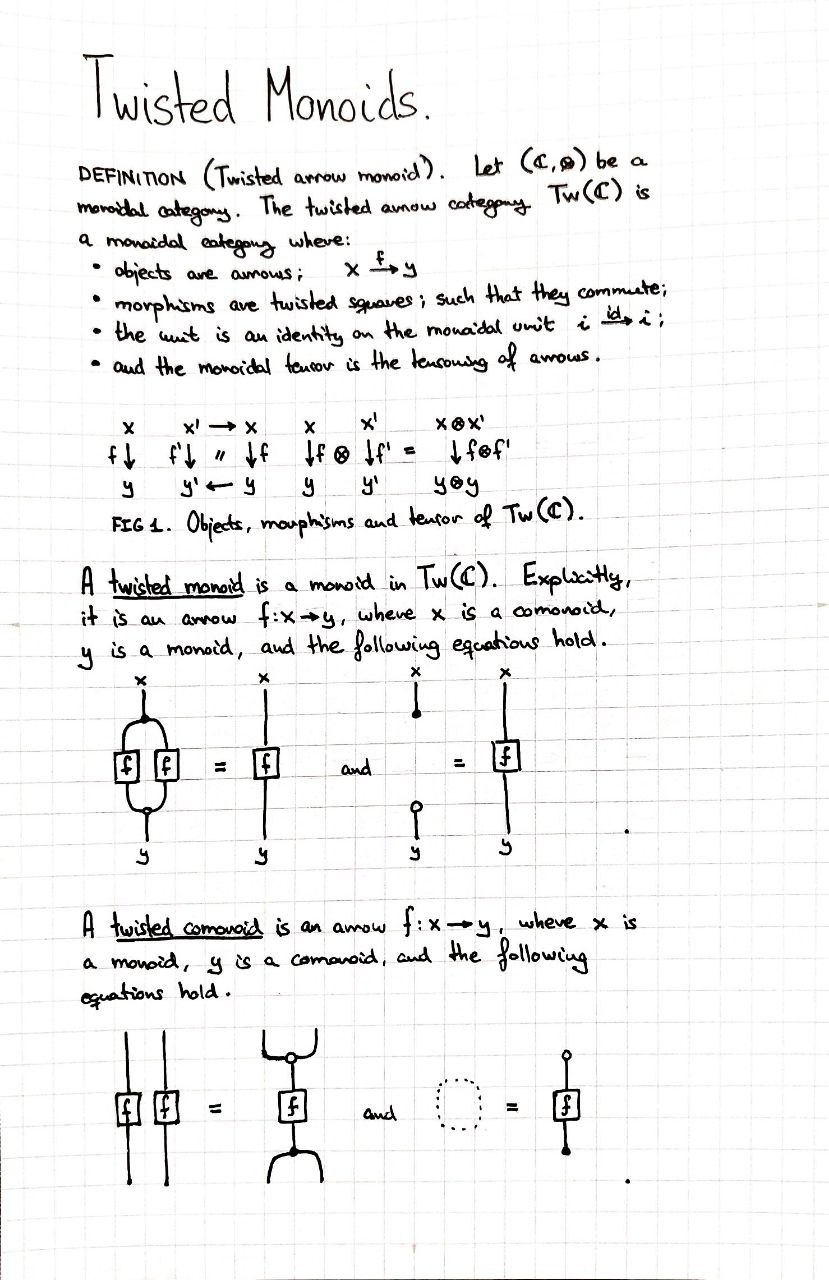 Twisted Monoids.
DEFINITION (Twisted arrow monoid). Let (ℂ,⊗) be a
monoidal category. The twisted arrow category Tw(ℂ) is
a monoidal category where:
• objects are arrows; x →f y
• morphisms are twisted squares; such that they commute;
• the unit is an identity on the monoidal unit i →id i;
• and the monoidal tensor is the tensoring of arrows.
x x' → x x x' x⊗x'
f↓ f'↓ 〃 ↓f ↓f ⊗ ↓f' = ↓f⊗f'
y y' ← y y y' y⊗y
FIG 1. Objects, morphisms and tensor of Tw(ℂ).
A twisted monoid is a monoid in Tw(ℂ). Explicitly,
it is an arrow f:x→y, where x is a comonoid,
y is a monoid, and the following equations hold.
x x x x
f f = f and = f
y y y y .
A twisted comonoid is an arrow f:x→y, where x is
a monoid, y is a comonoid, and the following
equations hold.
f f = f and = f
.